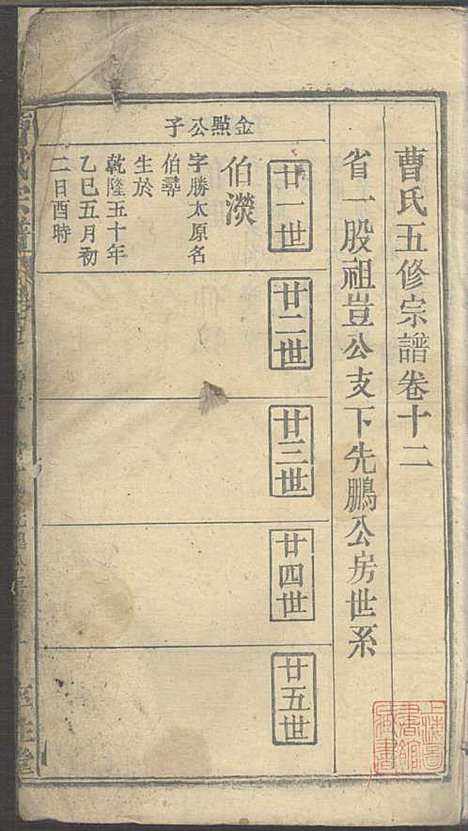 曹氏五修宗譜卷十二
省一股祖豈公支下先鵬公房世系
廿一世
廿二世
廿三世
廿四世
廿五世
金點公子
伯濙
字勝太原名
伯尋
生於
乾隆五十年
乙巳五月初
二日酉時
上海圖書館藏書